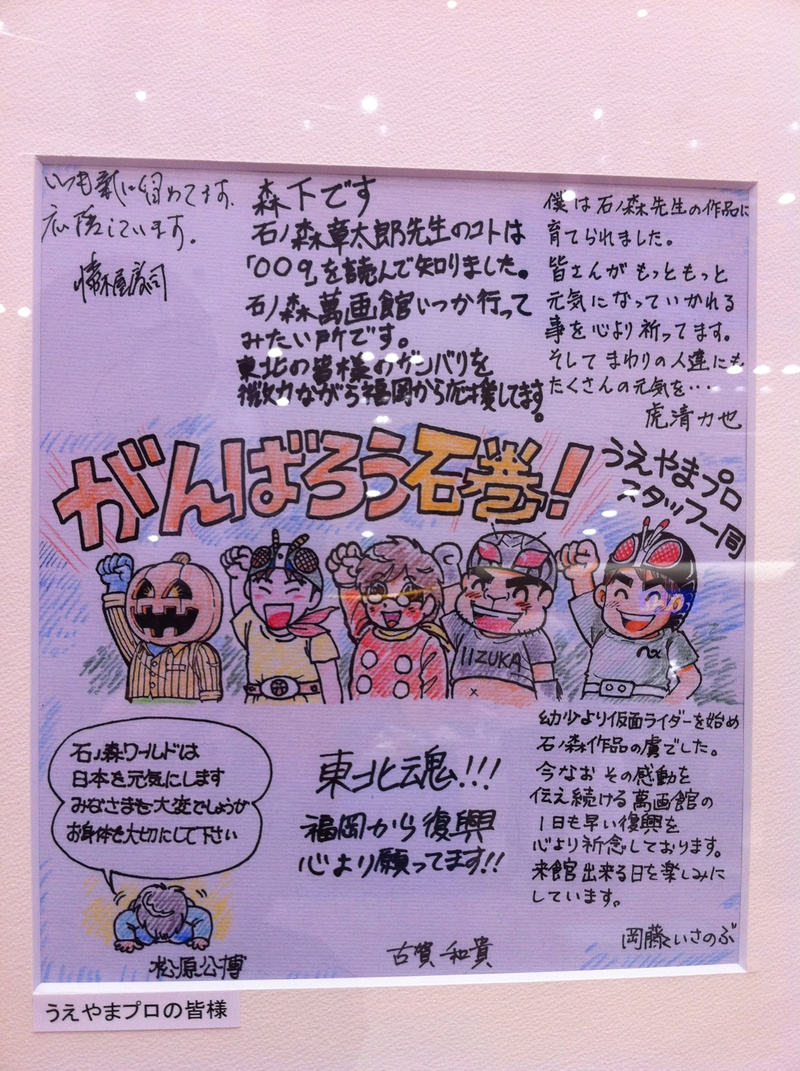 いつも気に留めてます。
応援しています。
森下です
石ノ森章太郎先生のコトは
「009」を読んで知りました。
石ノ森萬画館いつか行って
みたい所です。
東北の皆様のガンバリを
微力ながら福岡から応援してます。
僕は石ノ森先生の作品に
育てられました。
皆さんがもっともっと
元気になっていかれる
事を心より祈ってます。
そしてまわりの人達にも
たくさんの元気を…
虎清力也
がんばろう石巻!
うえやまプロ
スタッフ一同
IIZUKA
石ノ森ワールドは
日本を元気にします
みなさまも大変でしょうが
お身体を大切にして下さい
松原公博
東北魂!!!
福岡から復興
心より願ってます!!
古賀和貴
幼少より仮面ライダーを始め
石ノ森作品の虜でした。
今なおその感動を
伝え続ける萬画館の
1日も早い復興を
心より祈念しております。
来館出来る日を楽しみに
しています。
岡藤いさのぶ
うえやまプロの皆様